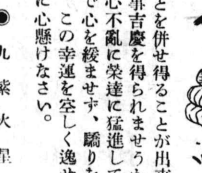 とを併せ得ることが出來
事吉慶を得られませうが
心不亂に榮達に猛進して
で心を緩ませず、驕りな
この幸運を空しく逸せ
に心懸けなさい。
● 九紫火星